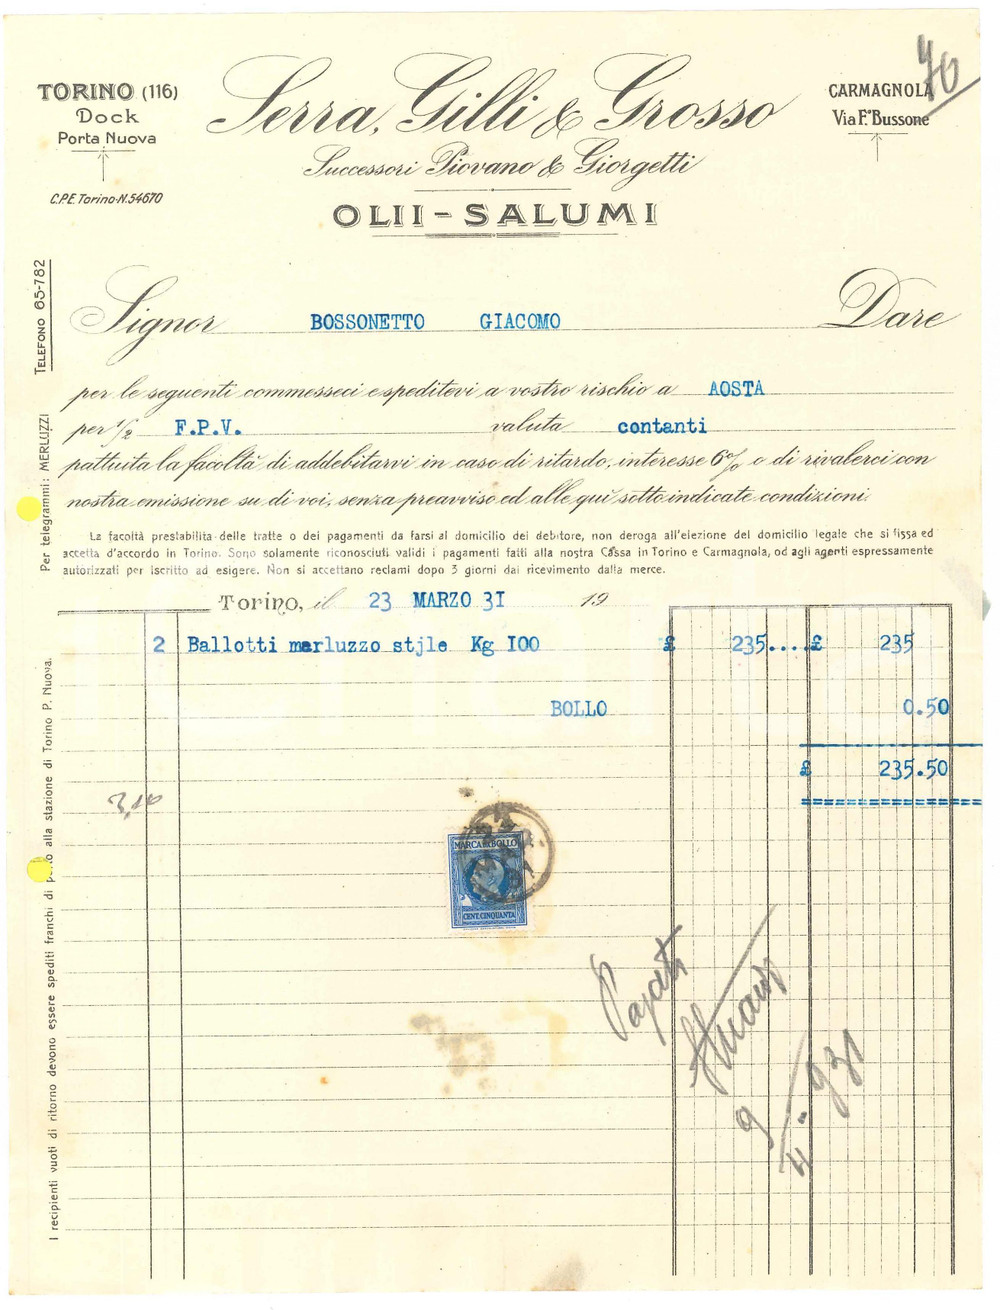 70
TORINO (116)
Dock
Porta Nuova
C.P.E. Torino-N. 54670
Serra, Gilli & Grosso
Successori Piovano & Giorgetti
OLII - SALUMI
CARMAGNOLA
Via F. Bussone
TELEFONO 65-782
Per telegrammi: MERLUZZI
I recipienti vuoti di ritorno devono essere spediti franchi di porto alla stazione di Torino P. Nuova.
Signor BOSSONETTO GIACOMO Dare
per le seguenti commesseci e speditevi a vostro rischio a AOSTA
per 1/2 F.P.V. valuta contanti
pattuita la facoltà di addebitarvi in caso di ritardo, interesse 6% o di rivalerci con
nostra emissione su di voi, senza preavviso ed alle qui sotto indicate condizioni.
La facoltà prestabilita delle tratte o dei pagamenti da farsi al domicilio del debitore, non deroga all'elezione del domicilio legale che si fissa ed
accetta d'accordo in Torino. Sono solamente riconosciuti validi i pagamenti fatti alla nostra Cassa in Torino e Carmagnola, od agli agenti espressamente
autorizzati per iscritto ad esigere. Non si accettano reclami dopo 3 giorni dal ricevimento dalla merce.
Torino, il 23 MARZO 31 19
2 Ballotti merluzzo stjle Kg I00 £ 235.... £ 235
BOLLO 0.50
£ 235.50
3,10
MARCA DA BOLLO
CENT. CINQUANTA
Pagato
9 4° 931